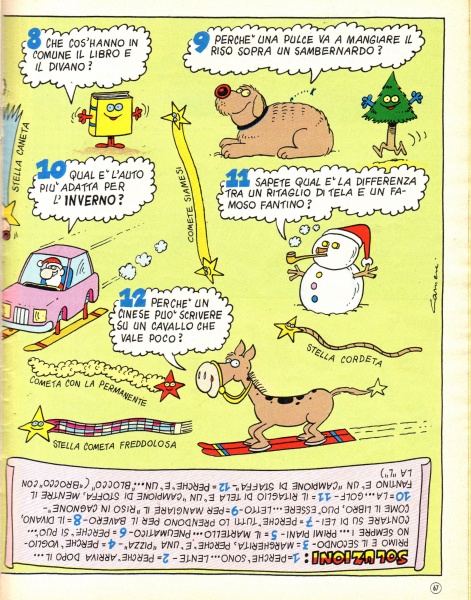 8 CHE COS'HANNO IN
COMUNE IL LIBRO E
IL DIVANO?
9 PERCHE' UNA PULCE VA A MANGIARE IL
RISO SOPRA UN SAMBERNARDO?
STELLA CANETA
COMETE SIAMESI
10 QUAL E' L'AUTO
PIU' ADATTA PER
L'INVERNO?
11 SAPETE QUAL E' LA DIFFERENZA
TRA UN RITAGLIO DI TELA E UN FA-
MOSO FANTINO?
12 PERCHE' UN
CINESE PUO' SCRIVERE
SU UN CAVALLO CHE
VALE POCO?
STELLA CORDETA
COMETA CON LA PERMANENTE
STELLA COMETA FREDDOLOSA
SOLUZIONI: 1= PERCHE', SONO... LENTE - 2= PERCHE' ARRIVA DOPO IL
PRIMO E IL SECONDO - 3= MARGHERITA, PERCHE' E' UNA "PIZZA" - 4= PERCHE' VOGLIO-
NO SEMPRE I... PRIMI PIANI - 5= IL MARTELLO... PNEUMATICO - 6= PERCHE' SI PUO'...
CONTARE SU DI LEI - 7= PERCHE' TUTTI LO PRENDONO PER IL BAVERO - 8= IL DIVANO,
COME IL LIBRO, PUO' ESSERE... LETTO - 9= PER MANGIARE IL "RISO IN CAGNONE" -
10= LA... GOLF - 11= IL RITAGLIO DI TELA E' UN "CAMPIONE DI STOFFA", MENTRE IL
FANTINO E' UN "CAMPIONE... DI STAFFA" - 12= PERCHE' E' UN... "BLOCCO" ("BROCCO" CON
LA "L")
67